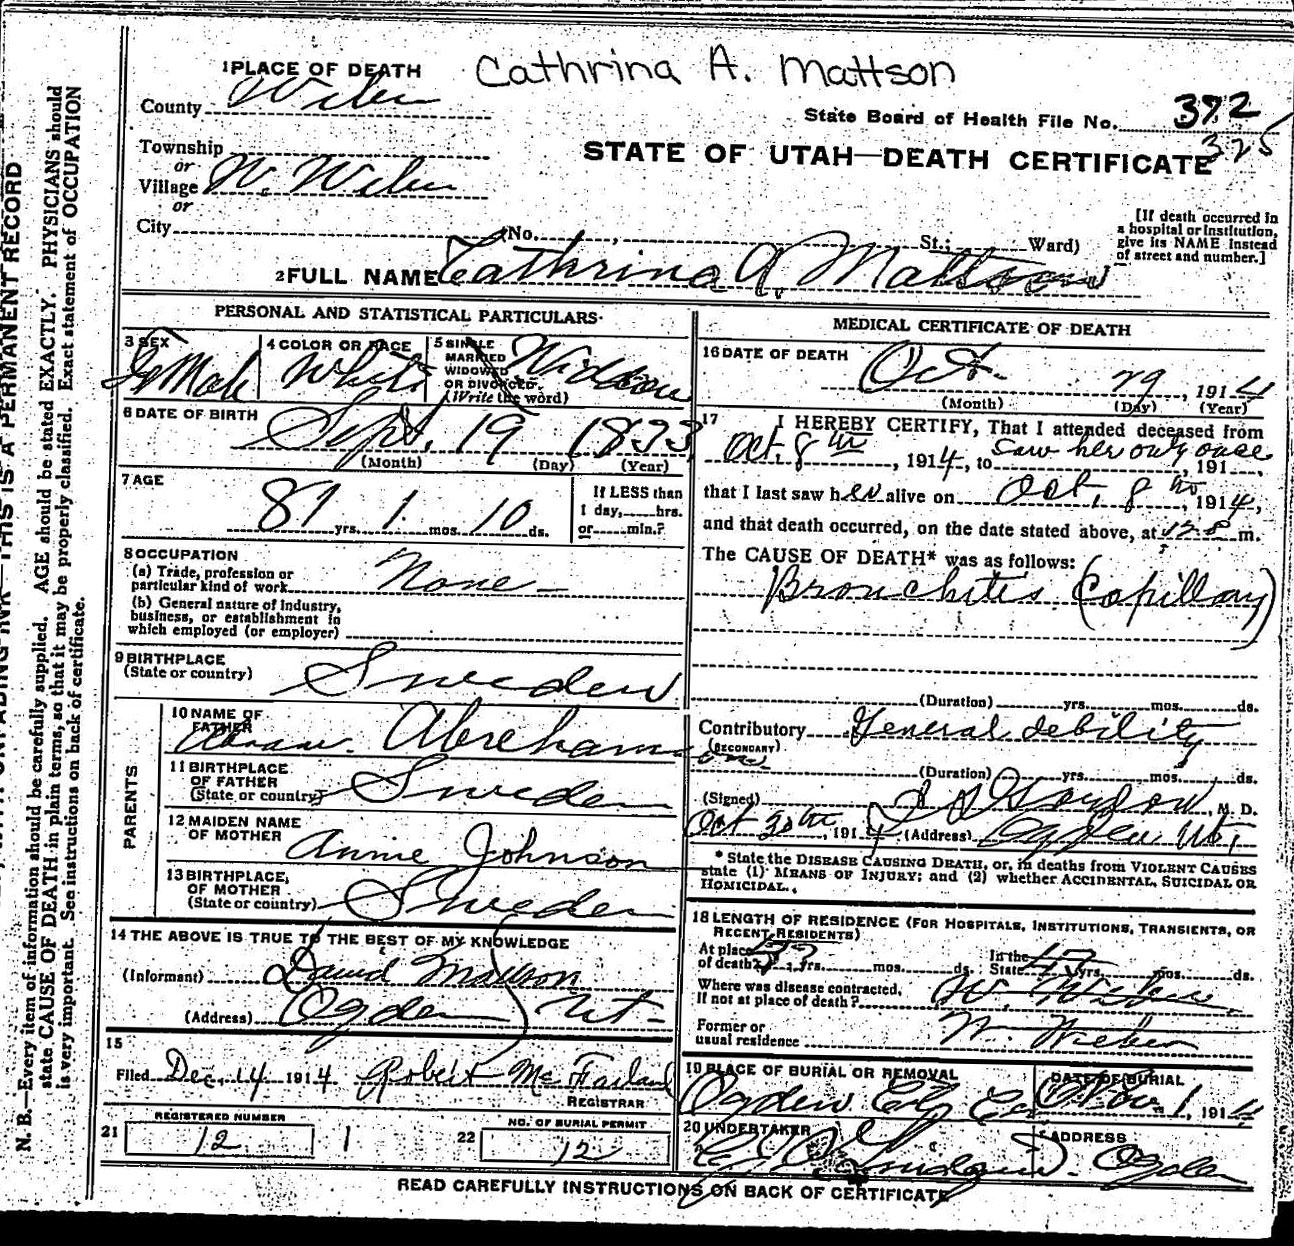 Cathrina A. Mattson
1 PLACE OF DEATH
County Weber
State Board of Health File No. 372
325
STATE OF UTAH—DEATH CERTIFICATE
Township
or
Village W. Weber
or
City (No. , St.; Ward)
[If death occurred in a hospital or institution, give its NAME instead of street and number.]
2 FULL NAME Cathrina A. Mattson
PERSONAL AND STATISTICAL PARTICULARS
3 SEX 4 COLOR OR RACE White
5 SINGLE MARRIED WIDOWED OR DIVORCED (Write the word) Widow
6 DATE OF BIRTH Sept. 19 1833
(Month) (Day) (Year)
7 AGE 81 yrs. 1 mos. 10 ds.
If LESS than 1 day, hrs. or min.?
8 OCCUPATION
(a) Trade, profession or particular kind of work None
(b) General nature of Industry, business, or establishment in which employed (or employer)
9 BIRTHPLACE
(State or country) Sweden
PARENTS
10 NAME OF FATHER
11 BIRTHPLACE OF FATHER (State or country) Sweden
12 MAIDEN NAME OF MOTHER Annie Johnson
13 BIRTHPLACE OF MOTHER (State or country) Sweden
14 THE ABOVE IS TRUE TO THE BEST OF MY KNOWLEDGE
(Informant) David Mattson
(Address) Ogden Ut-
15
Filed Dec. 14 1914 Robert McFarland
REGISTRAR
21 REGISTERED NUMBER 12 1
22 NO. OF BURIAL PERMIT 12
MEDICAL CERTIFICATE OF DEATH
16 DATE OF DEATH Oct. 29, 1914
(Month) (Day) (Year)
17 I HEREBY CERTIFY, That I attended deceased from
Oct. 8th, 1914, to saw her only once, 191
that I last saw her alive on Oct. 8th 1914,
and that death occurred, on the date stated above, at m.
The CAUSE OF DEATH* was as follows:
Bronchitis (Capillary)
(Duration) yrs. mos. ds.
Contributory General debility
(SECONDARY)
(Duration) yrs. mos. ds.
(Signed) M. D.
Oct 30th, 1914 (Address) Ogden Ut,
* State the DISEASE CAUSING DEATH, or, in deaths from VIOLENT CAUSES
state (1) MEANS OF INJURY; and (2) whether ACCIDENTAL, SUICIDAL OR
HOMICIDAL.
18 LENGTH OF RESIDENCE (FOR HOSPITALS, INSTITUTIONS, TRANSIENTS, OR
RECENT RESIDENTS)
At place of death yrs. mos. ds. In the State yrs. mos. ds.
Where was disease contracted, If not at place of death? W. Weber
Former or usual residence W. Weber
19 PLACE OF BURIAL OR REMOVAL Ogden City
DATE OF BURIAL Nov. 1, 1914
20 UNDERTAKER ADDRESS Ogden
READ CAREFULLY INSTRUCTIONS ON BACK OF CERTIFICATE
N. B.—Every item of information should be carefully supplied. AGE should be stated EXACTLY. PHYSICIANS should
state CAUSE OF DEATH in plain terms, so that it may be properly classified. Exact statement of OCCUPATION
is very important. See instructions on back of certificate.
THIS IS A PERMANENT RECORD